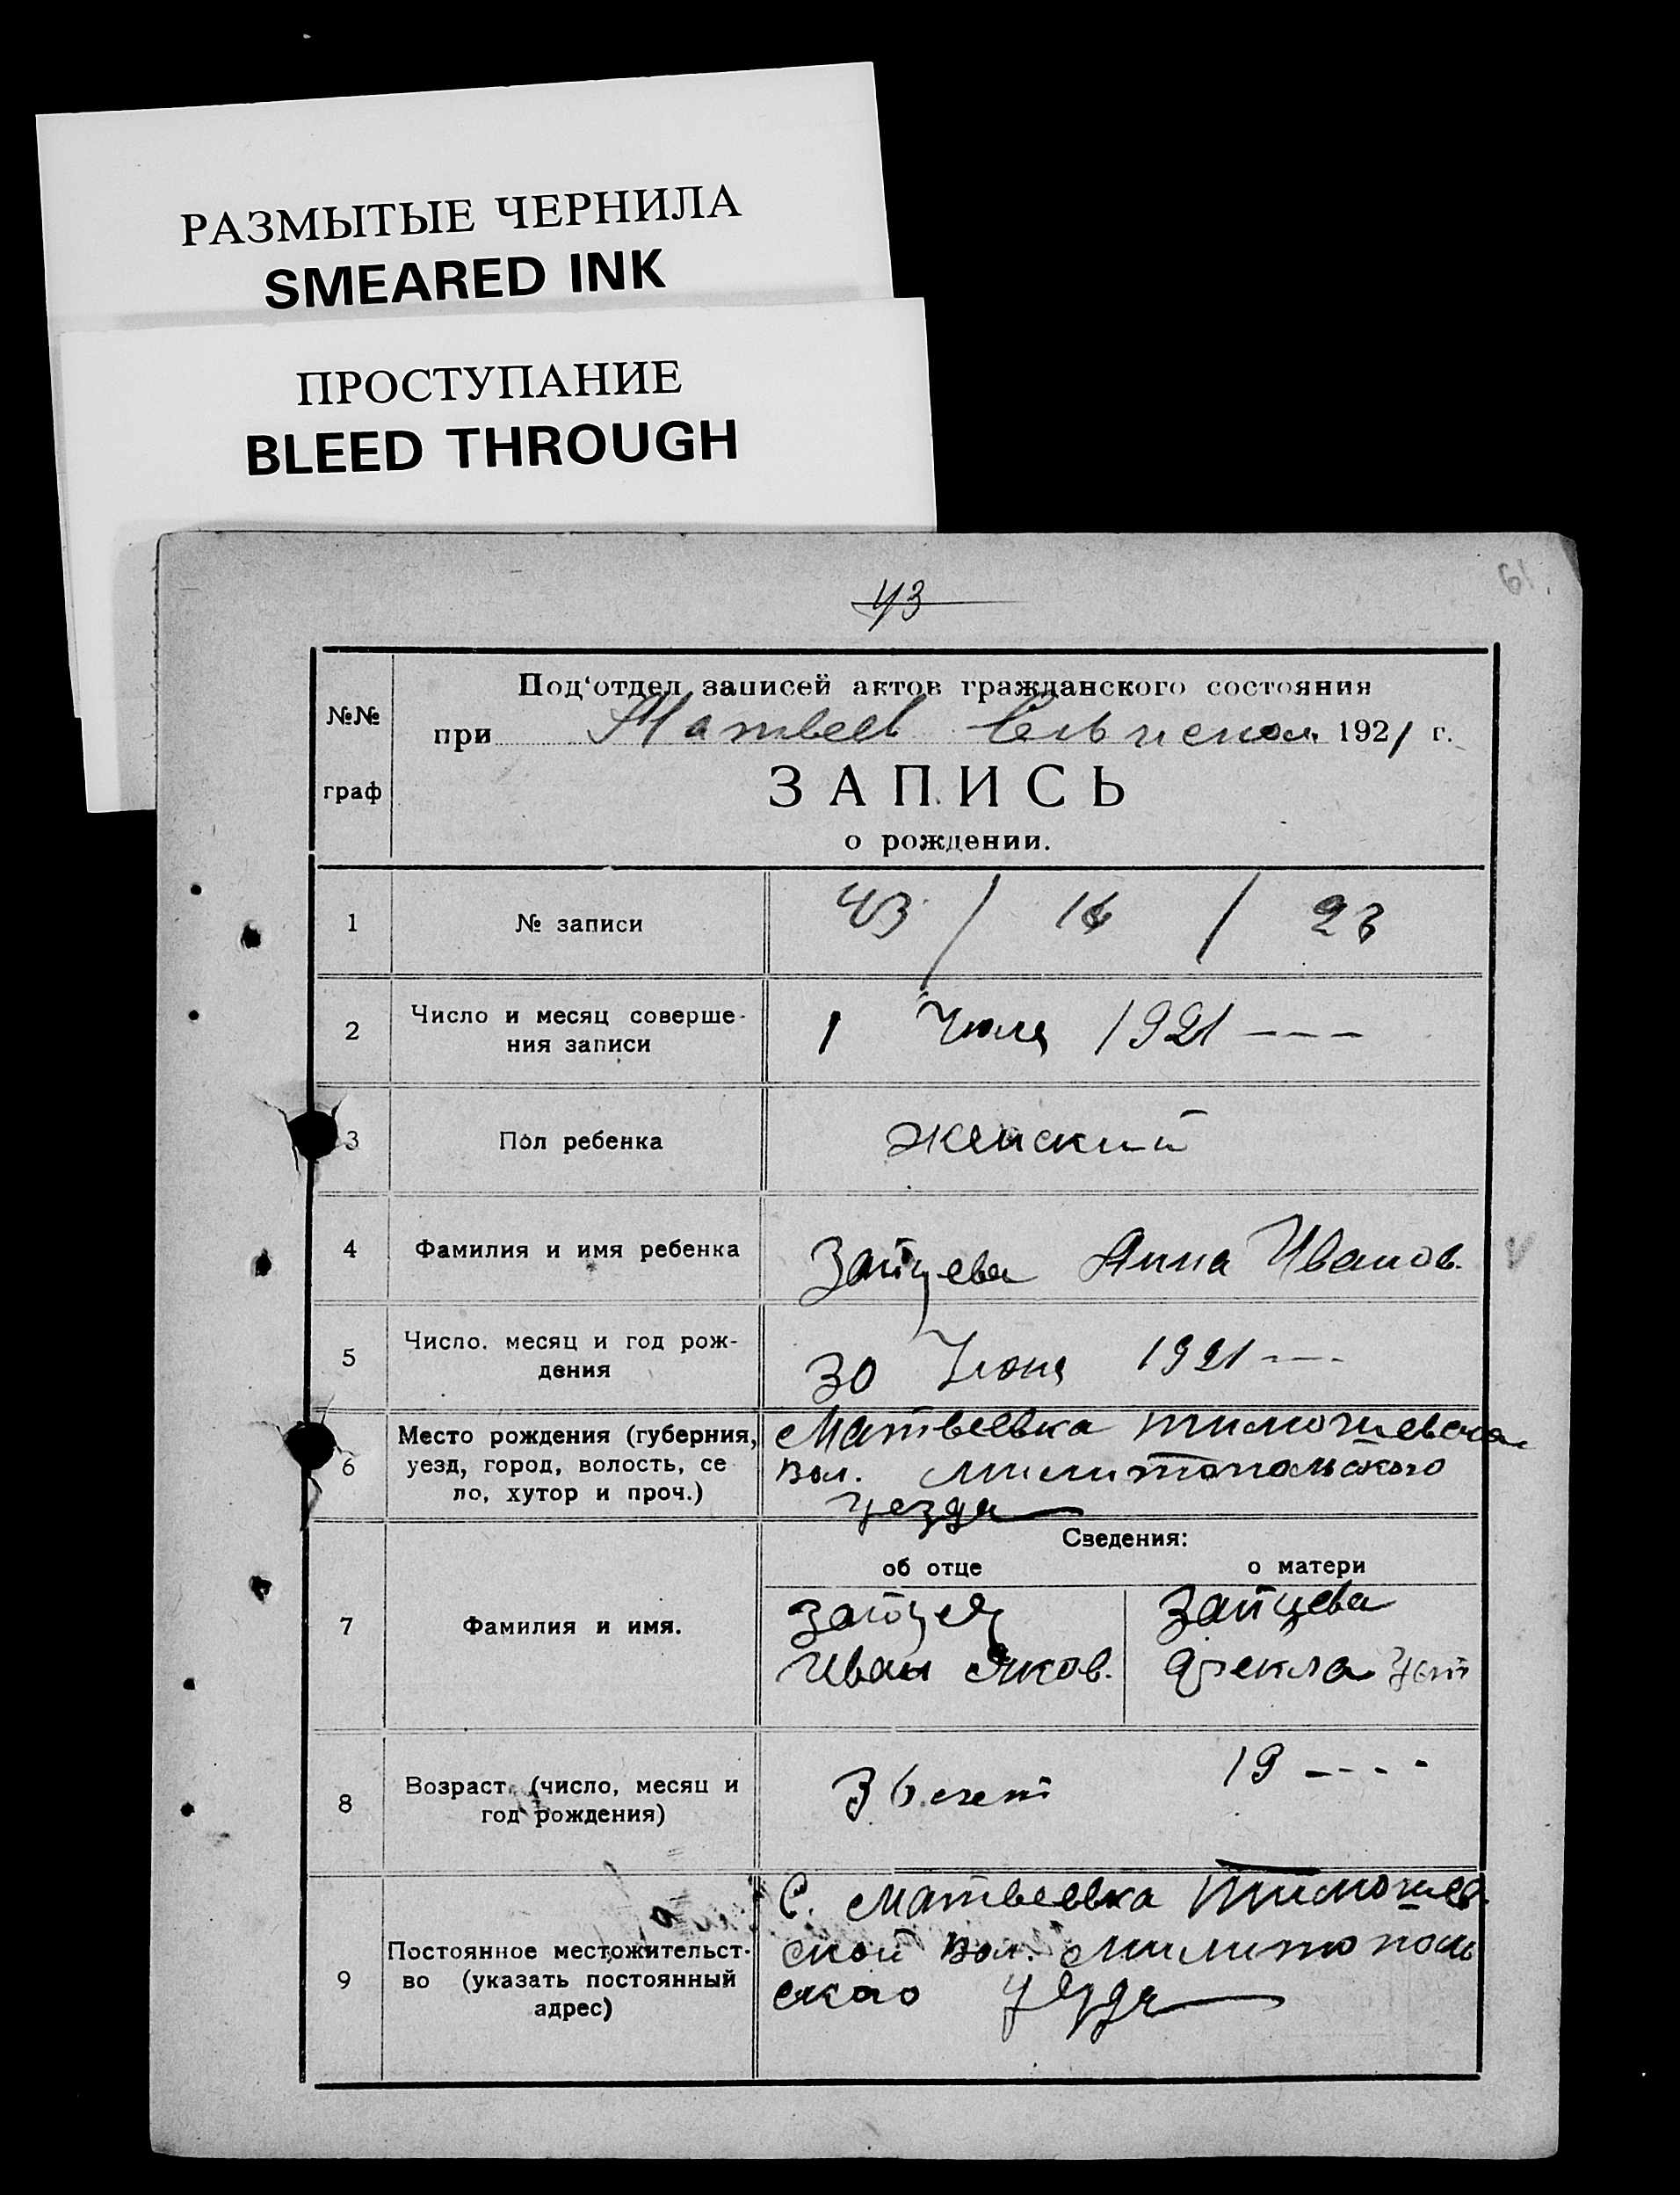 РАЗМЫТЫЕ ЧЕРНИЛА
SMEARED INK
ПРОСТУПАНИЕ
BLEED THROUGH
61
43
№№
граф
Под‘отдел записей актов гражданского состояния
при Матвеев 1921 г.
ЗАПИСЬ
о рождении.
1 № записи 43 / 14 / 23
2 Число и месяц соверше-
ния записи
1 Июля 1921 - - -
3 Пол ребенка женский
4 Фамилия и имя ребенка Зайцева Анна Иванов.
5 Число. месяц и год рож-
дения
30 Июня 1921 - - -
6 Место рождения (губерния,
уезд, город, волость, се
ло, хутор и проч.)
Матвеевка Тимошевской
вол. Милитопольского
уезда
Сведения:
об отце о матери
7 Фамилия и имя.
Зайцев
Иван Яков.
Зайцева
Фекла Уст
8 Возраст. (число, месяц и
год рождения)
36 лет 19 - - - -
9 Постоянное местожительст-
во (указать постоянный
адрес)
С. Матвеевка Тимошев
ской вол. Милитополь
ского уезда